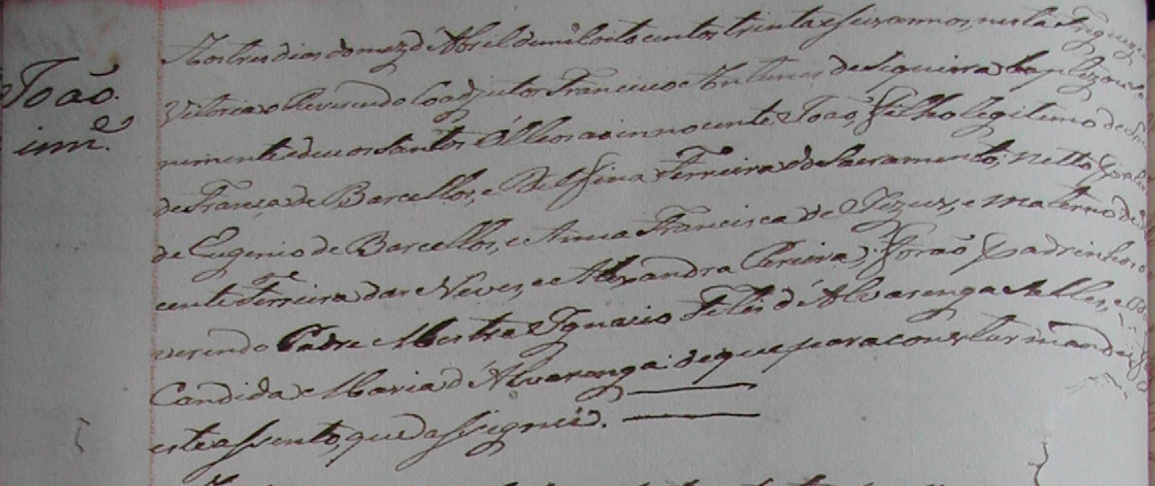 João.
inn.e
Aos tres dias do mez d'Abril de mil oito centos trinta e seis annos, nesta Freguezia
Vitoria o Reverendo Coadjutor Francisco Antunes de Siqueira baptizou
nemente e deu os Santos Oleos ao innocente João, filho legitimo de
de França de Barcellos, e Delfina Ferreira do Sacramento; netto
de Eugenio de Barcellos, e Anna Francisca de Jezus, e materno de
cente Ferreira das Neves, e Alexandra Pereira: forão Padrinhos o
verendo Padre Mestre Ignacio Felis d'Alvarenga Salles, e
Candida Maria d'Alvarenga: de que para constar mandei
este assento, que assignei.